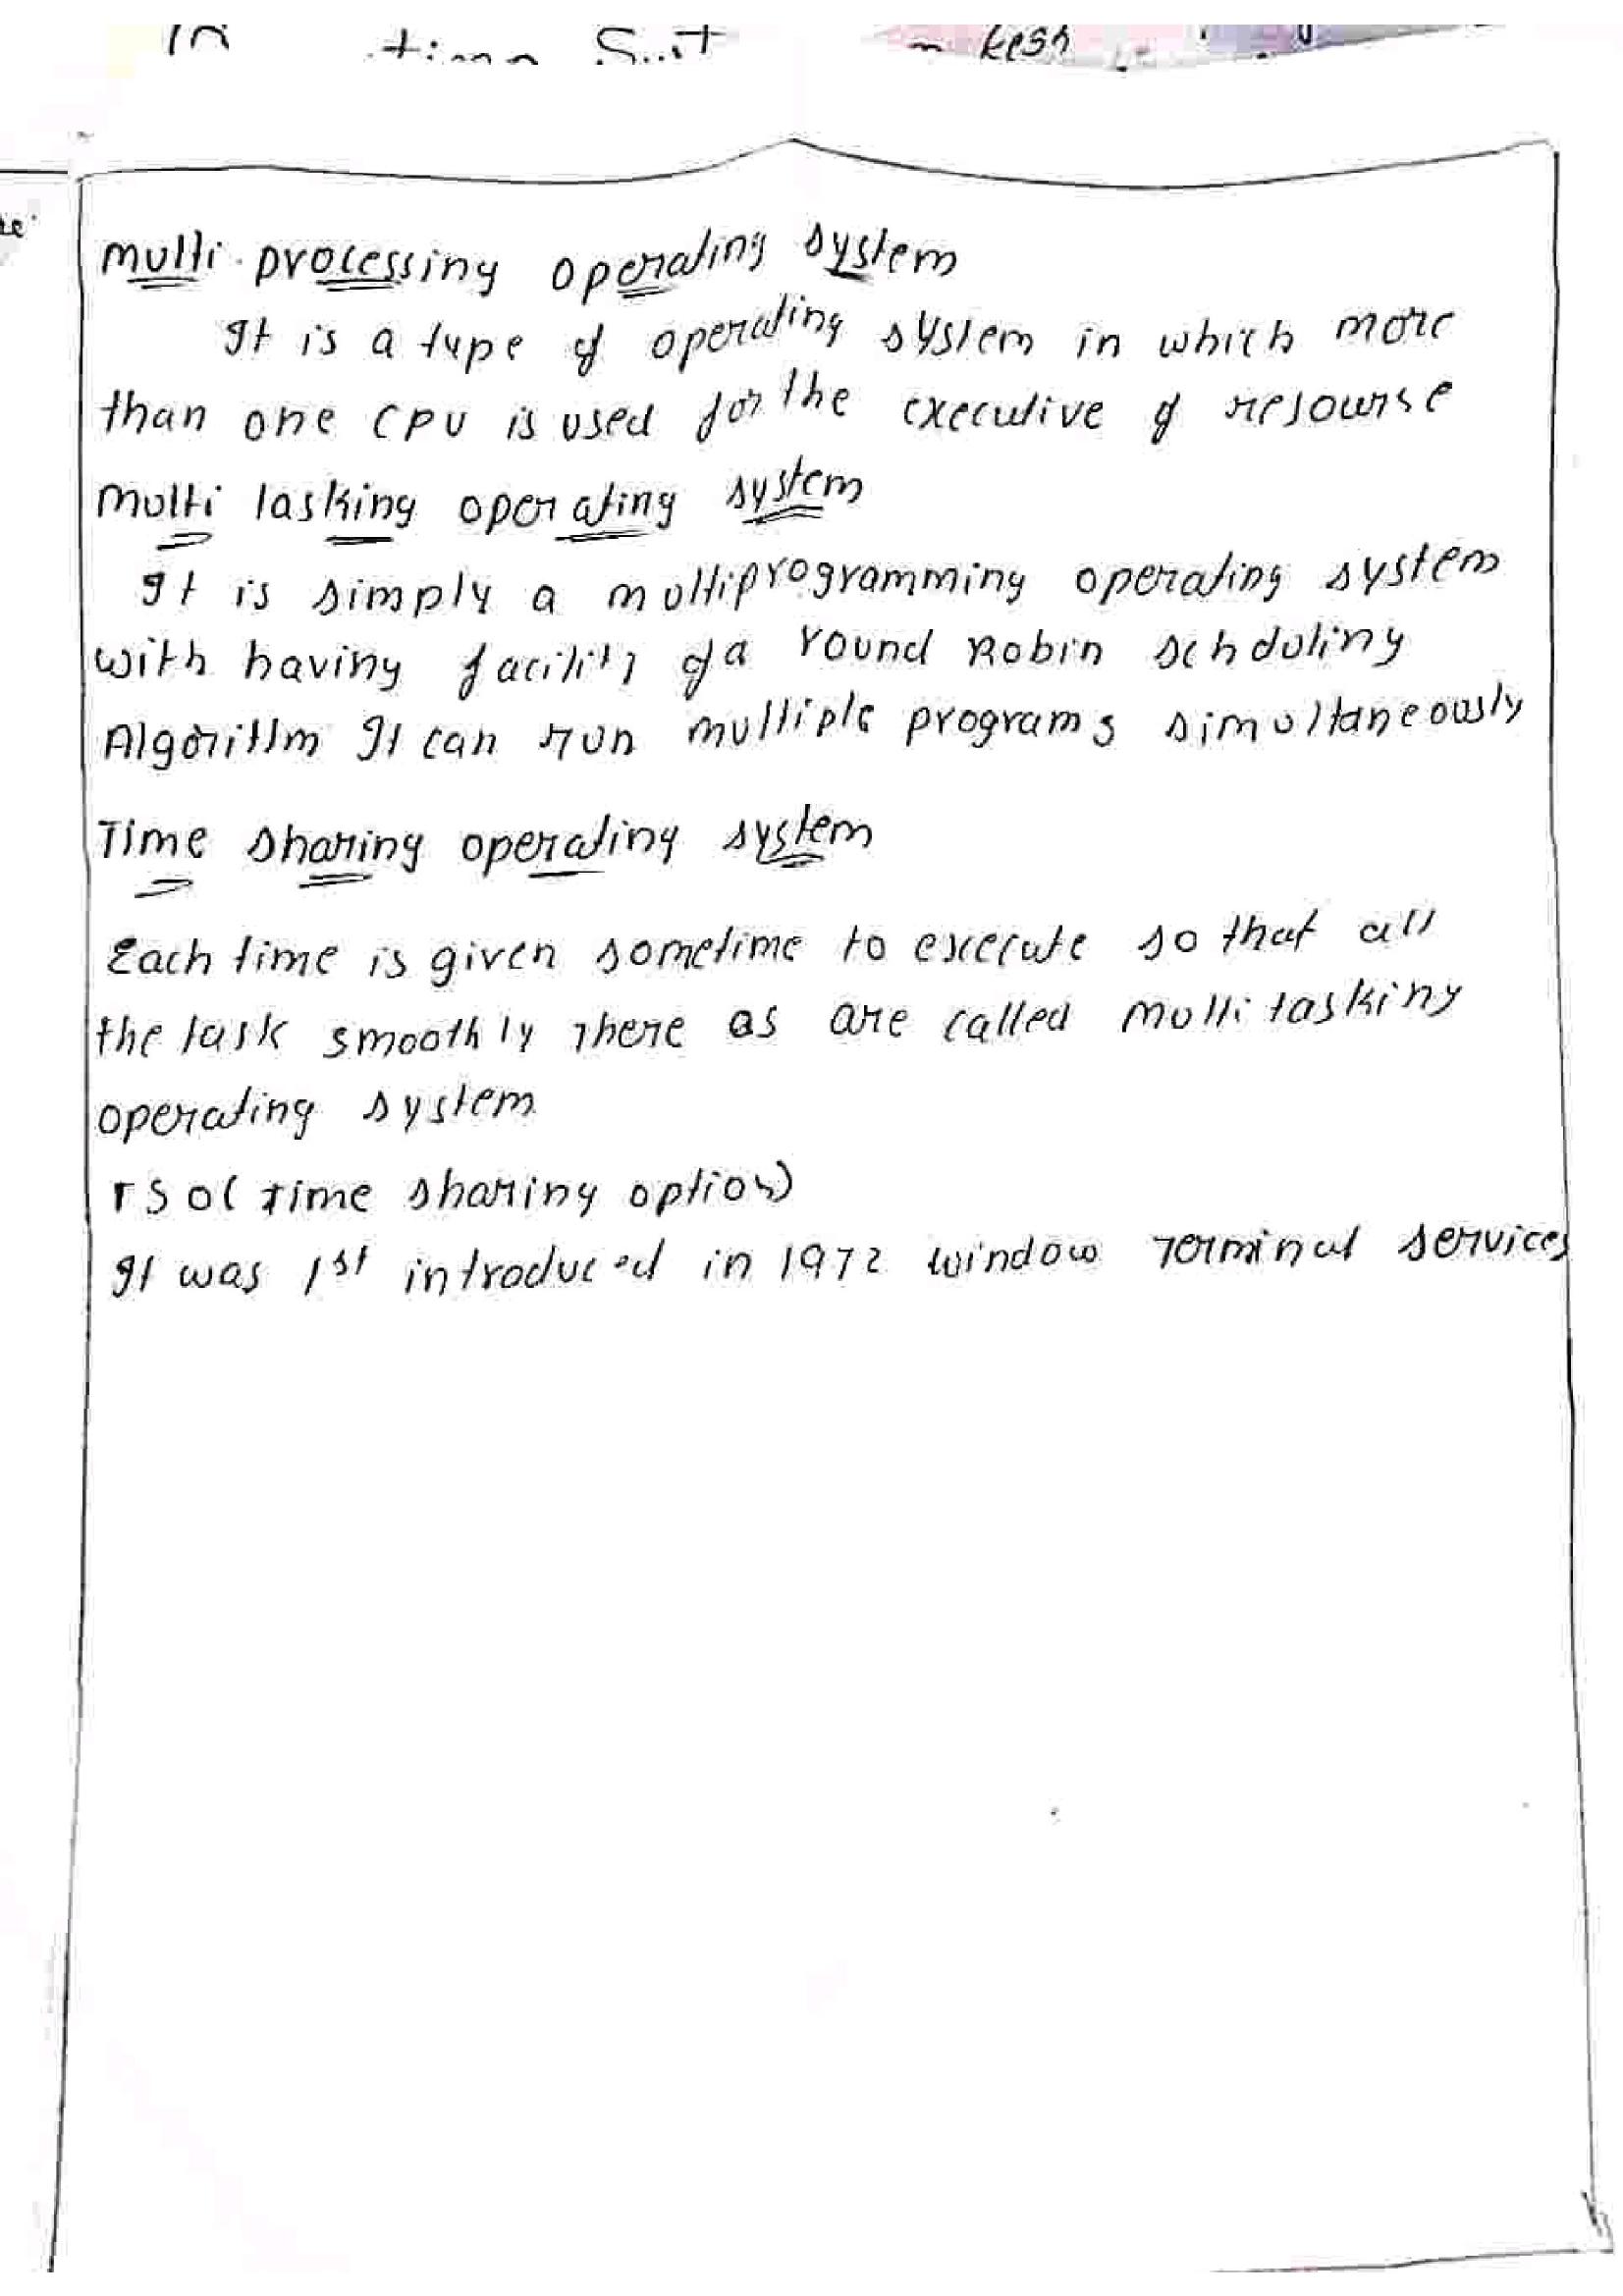 Multi-processing operating system
It is a type of operating system in which more
than one CPU is used for the executive of resourse
Multi tasking operating system
It is simply a multiprogramming operating system
with having facility of a round Robin schduling
Algorithm It can run multiple programs simultaneously
Time sharing operating system
Each time is given sometime to execute so that all
the task smoothly There as are called multi tasking
operating system
TSO (Time sharing option)
It was 1st introduced in 1972 window Terminal services